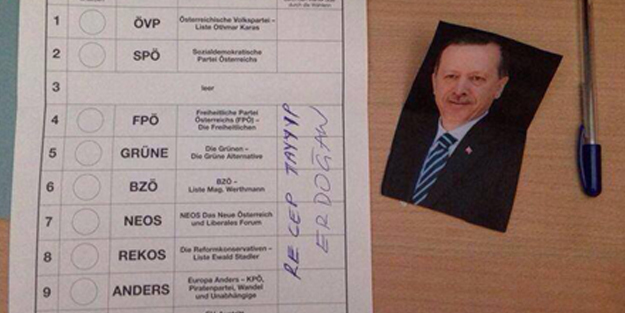 1 ÖVP Österreichische Volkspartei –
Liste Othmar Karas
2 SPÖ Sozialdemokratische
Partei Österreichs
3 leer
4 FPÖ Freiheitliche Partei
Österreichs (FPÖ) –
Die Freiheitlichen
5 GRÜNE Die Grünen –
Die Grüne Alternative
6 BZÖ BZÖ –
Liste Mag. Werthmann
7 NEOS NEOS Das Neue Österreich
und Liberales Forum
8 REKOS Die Reformkonservativen –
Liste Ewald Stadler
9 ANDERS Europa Anders – KPÖ,
Piratenpartei, Wandel
und Unabhängige
RECEP TAYYYP
ERDOĞAN